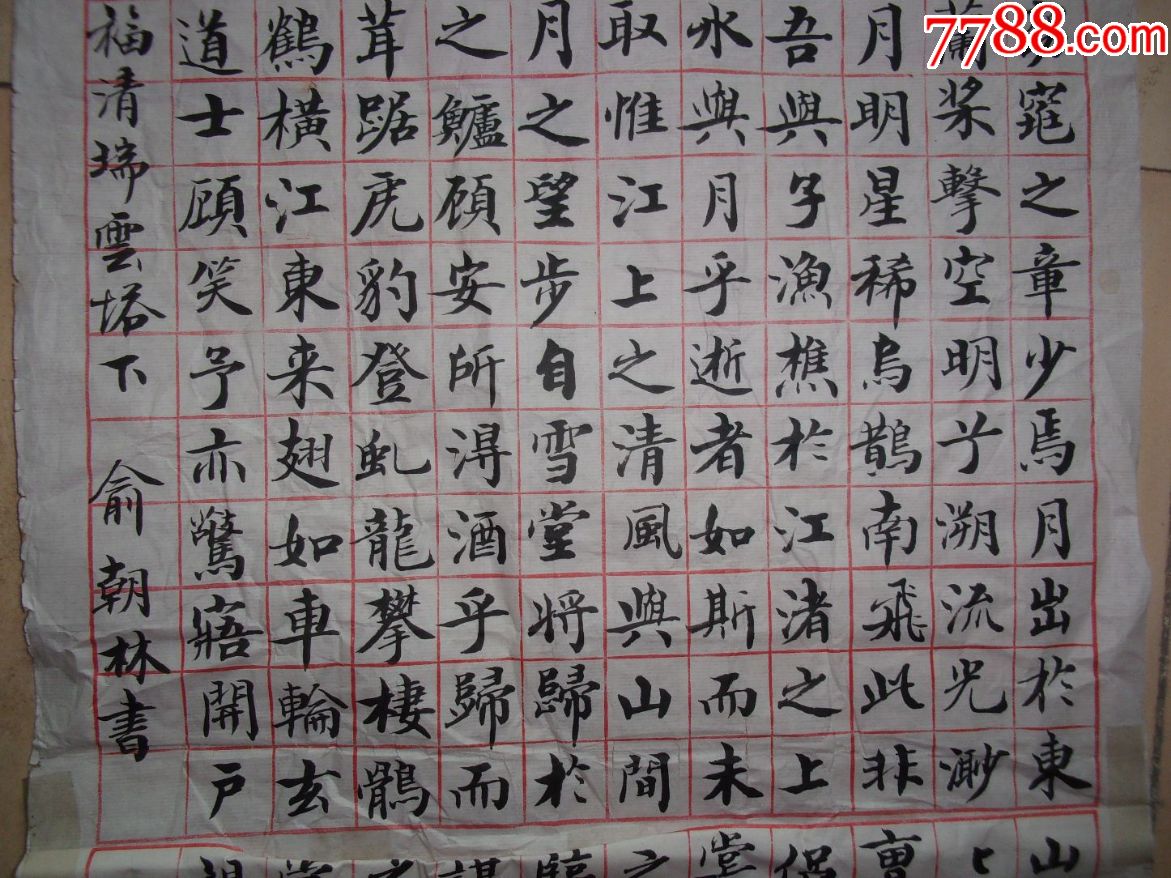 7788.com
窕之章少焉月出於東山
蘭槳擊空明兮溯流光渺
月明星稀烏鵲南飛此非曹
吾與子漁樵於江渚之上侶
水與月乎逝者如斯而未嘗
取惟江上之清風與山間之
月之望步自雪堂將歸於臨
之鱸顧安所得酒乎歸而謀
茸踞虎豹登虬龍攀棲鶻之
鶴橫江東来翅如車輪玄裳
道士顧笑予亦驚寤開戶視
福清瑞雲塔下 俞朝林書